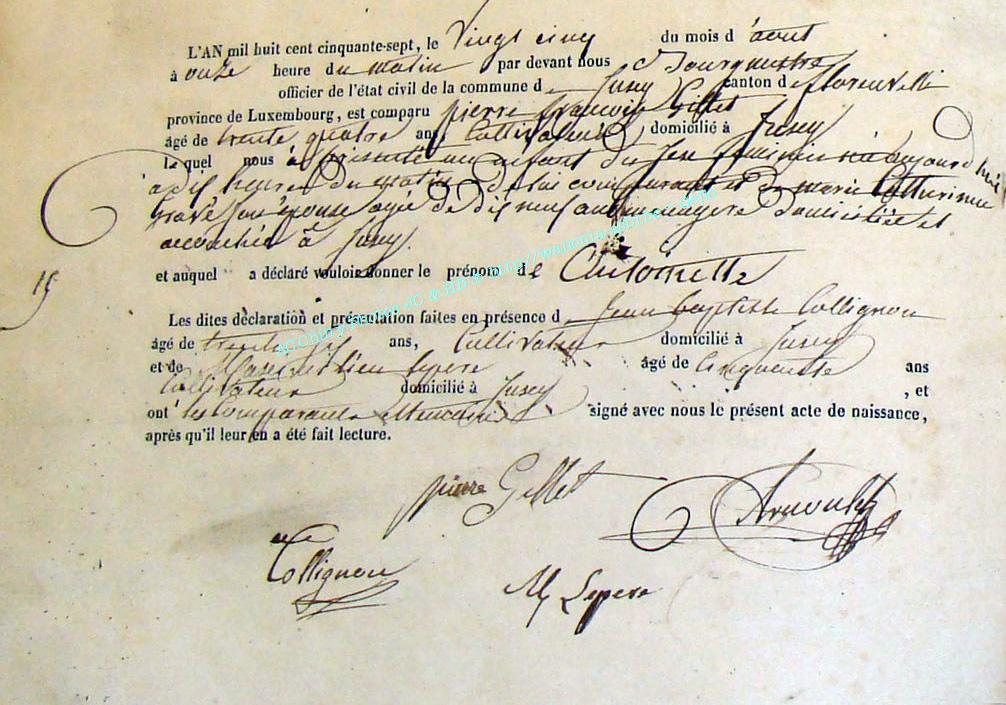 L'AN mil huit cent cinquante-sept, le Vingt cinq du mois d'août
à onze heure du matin par devant nous Bourguestre
officier de l'état civil de la commune de Jusey canton de florenville
province de Luxembourg, est comparu pierre francois Gillet
âgé de trente quatre ans Cultivateur domicilié à Jusey
lequel nous a présenté un enfant du sexe féminin né aujourd'hui
à dix heures du matin de lui comparant et de marie Catherine
son épouse agée de dix neuf ans menagere domiciliée et
accouchée à Jusey.
et auquel a déclaré vouloir donner le prénom de Antoinette
19
Les dites déclaration et présentation faites en présence de Jean baptiste Collignon
âgé de trente ans, Cultivateur domicilié à Jusey
et de lepere âgé de Cinquante ans
Cultivateur domicilié à Jusey , et
ont les Comparants et temoins signé avec nous le présent acte de naissance,
après qu'il leur en a été fait lecture.
pierre Gillet
Arnould
Collignon
M Lepere